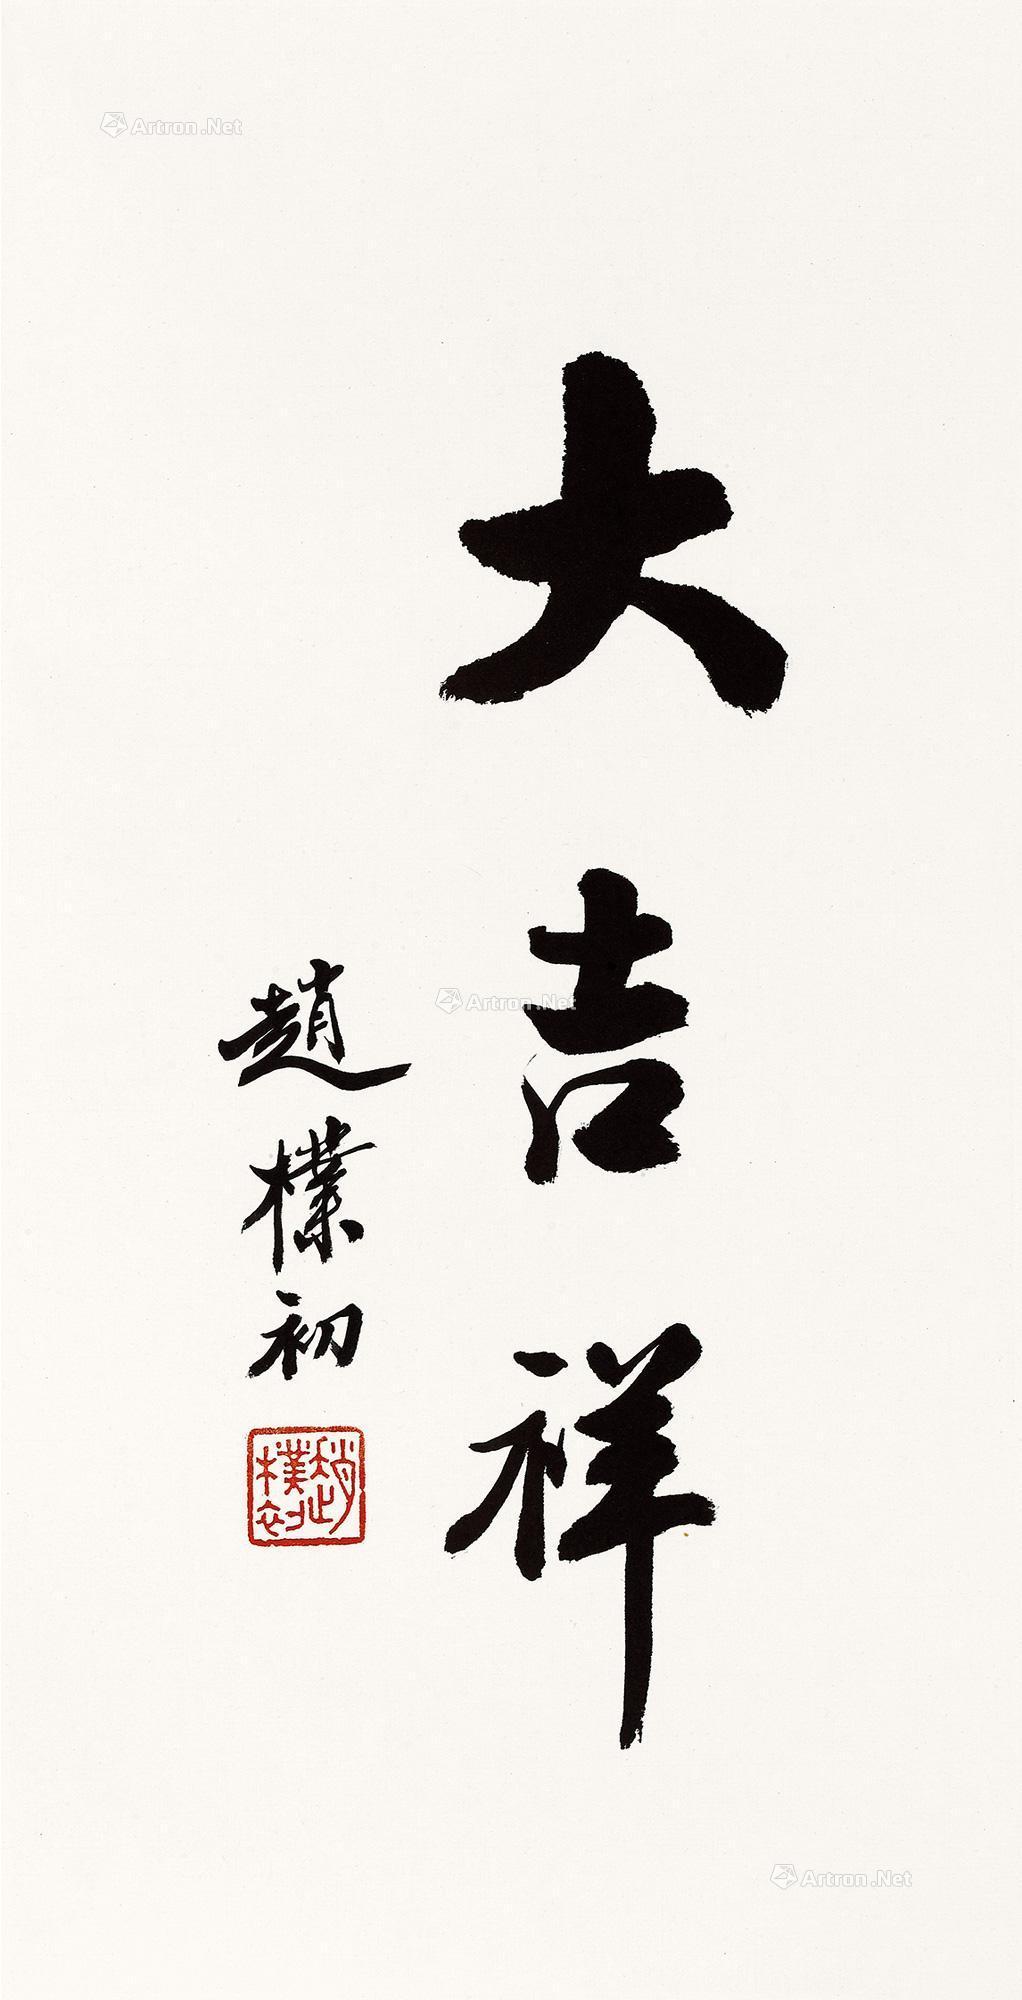 大吉祥
趙樸初
趙樸初
Artron.Net
Artron.Net
Artron.Net